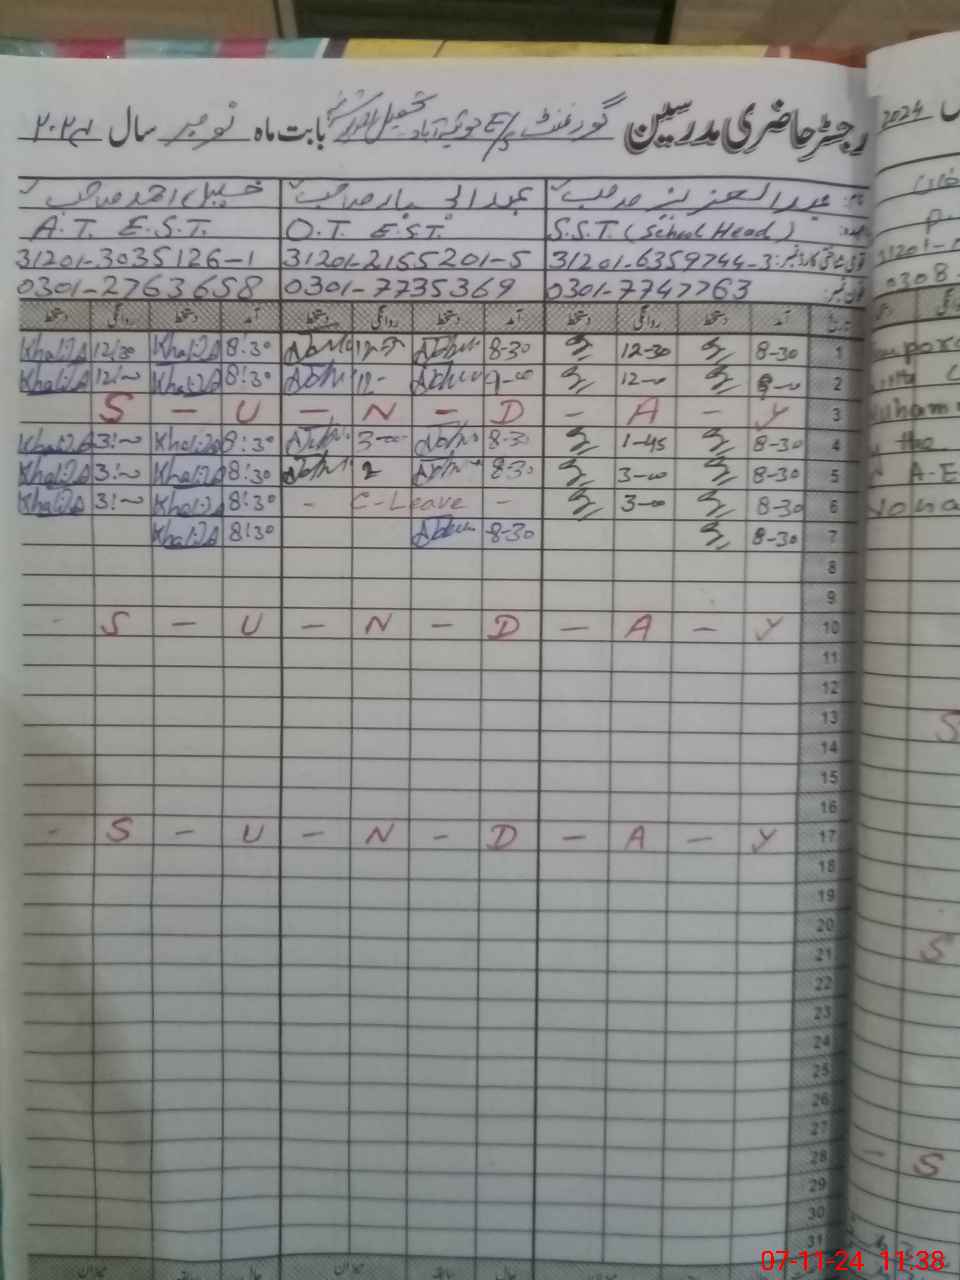 رجسٹر حاضری مدرسین گورنمنٹ بابت ماہ نومبر سال ۲۰۲۴ء
نام: عبدالعزیز صاحب عبدالجبار صاحب خلیل احمد صاحب
عہدہ: S.S.T. (School Head) O.T. E.S.T. A.T. E.S.T.
قومی شناختی کارڈ نمبر: 31201-6359744-3 31201-2155201-5 31201-3035126-1
فون نمبر: 0301-7747763 0301-7735369 0301-2763658
تاریخ آمد دستخط روانگی دستخط آمد دستخط روانگی دستخط آمد دستخط روانگی دستخط
1 8-30 12-30 8-30 8:30 Khalid 12/30 Khalid
2 9-00 12-00 9-00 12- 8:30 Khalid 12/~ Khalid
3 S - U - N - D - A - Y
4 8-30 1-45 8-30 3-00 8:30 Khalid 3!~ Khalid
5 8-30 3-00 8-30 2 8:30 Khalid 3!~ Khalid
6 8-30 3-00 - C-Leave - 8:30 Khalid 3!~ Khalid
7 8-30 8-30 8:30 Khalid
8
9
10 - S - U - N - D - A - Y
11
12
13
14
15
16
17 - S - U - N - D - A - Y
18
19
20
21
22
23
24
25
26
27
28
29
30
31
2024
0308-
A-E
S
S
- S
07-11-24 11:38